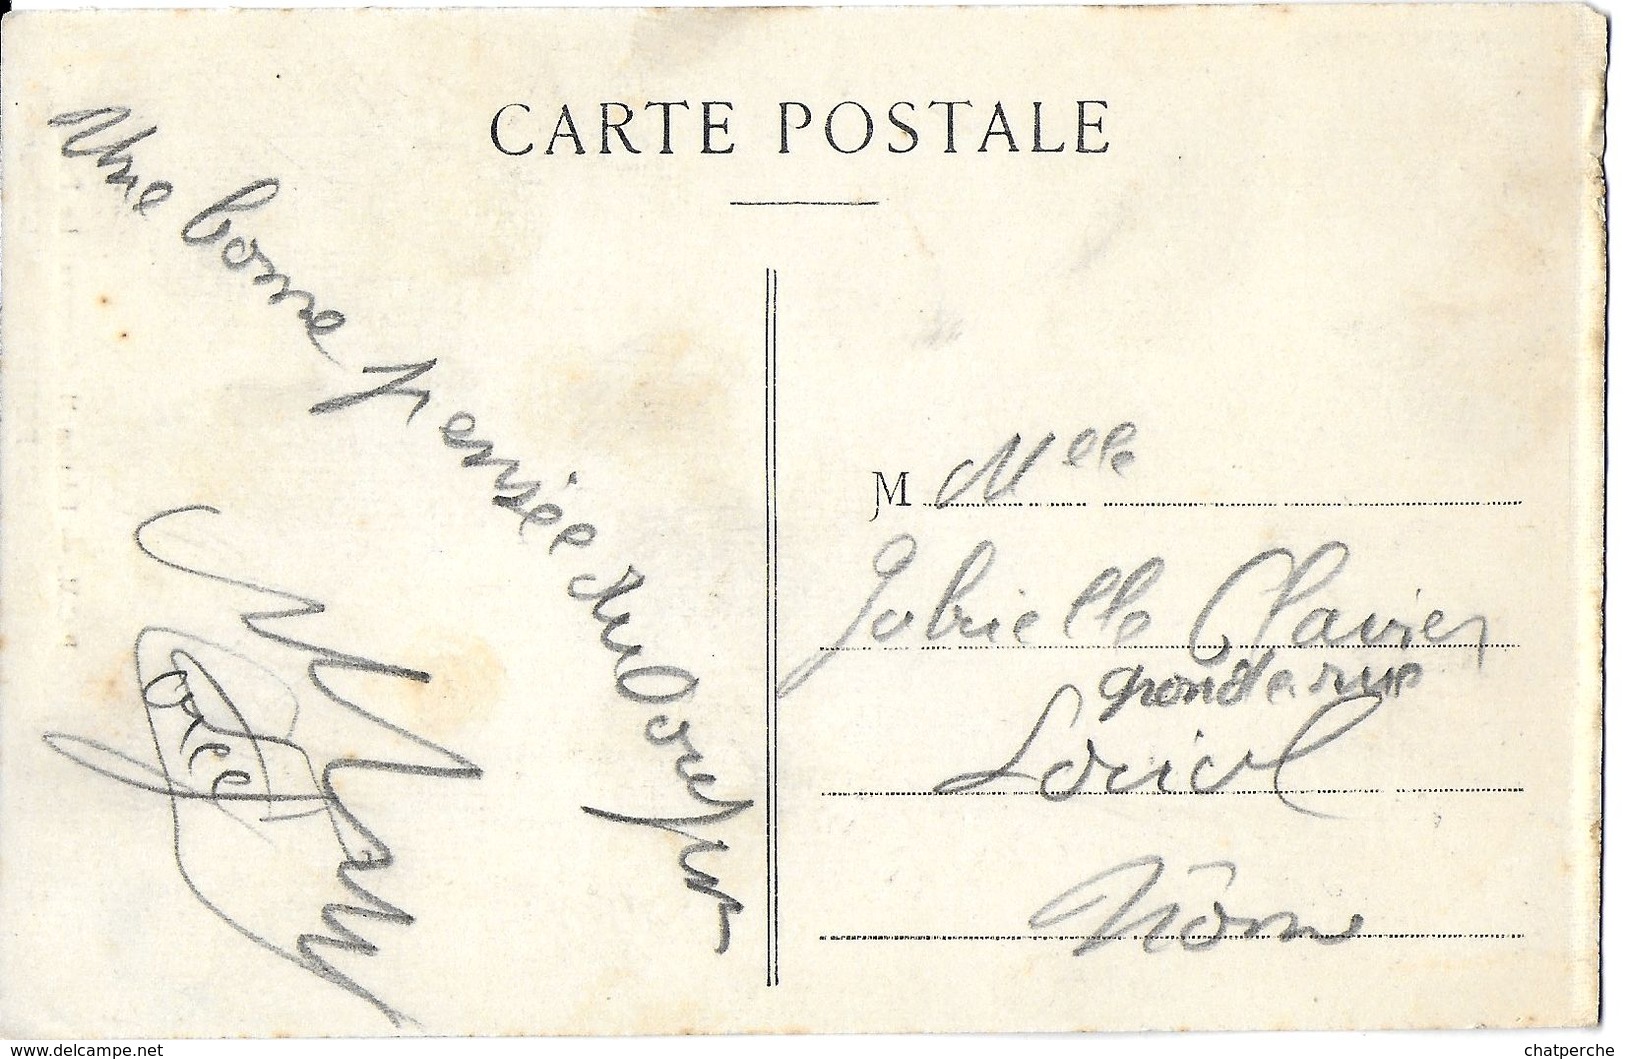 CARTE POSTALE
Une bonne pensée du
M Mlle
Gabrielle Clavier
Grande rue
Loriol
Drôme
www.delcampe.net
chatperche